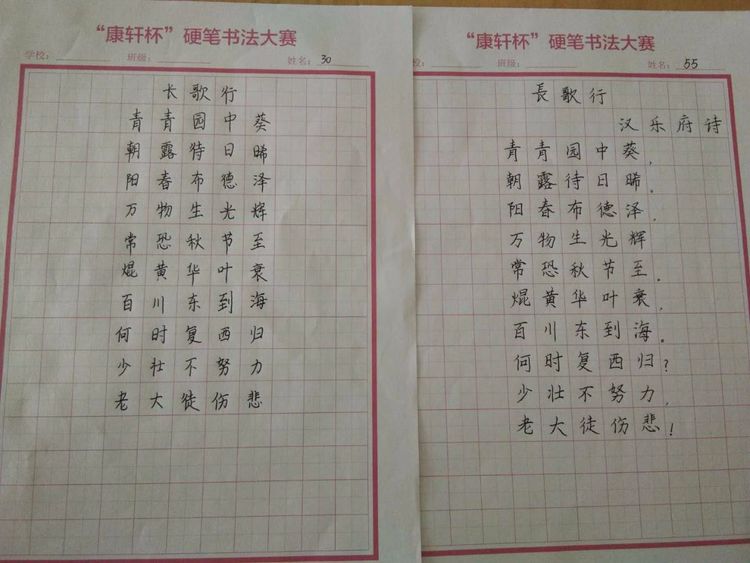 “康轩杯”硬笔书法大赛
学校： 班级： 姓名：30
长歌行
青青园中葵
朝露待日晞
阳春布德泽
万物生光辉
常恐秋节至
焜黄华叶衰
百川东到海
何时复西归
少壮不努力
老大徒伤悲
“康轩杯”硬笔书法大赛
校： 班级： 姓名：55
長歌行
汉乐府诗
青青园中葵，
朝露待日晞。
阳春布德泽，
万物生光辉
常恐秋节至。
焜黄华叶衰，
百川东到海。
何时复西归？
少壮不努力，
老大徒伤悲！